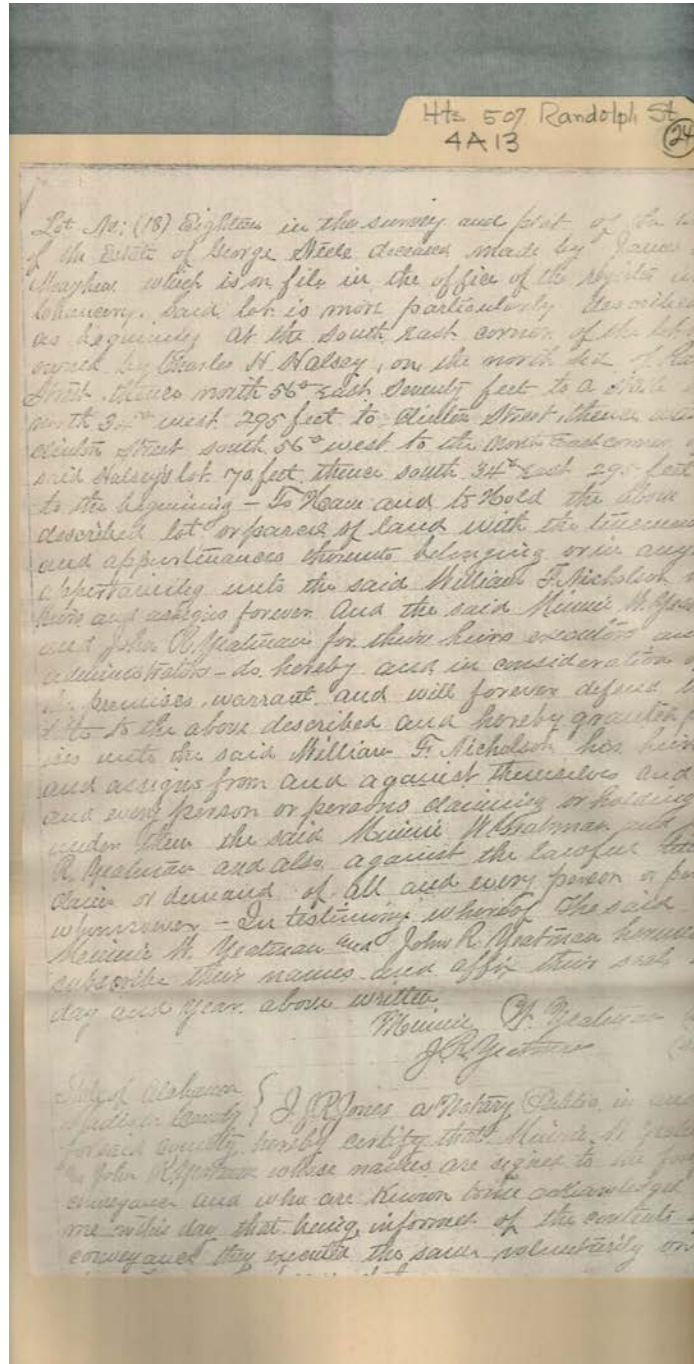 Hts 507 Randolph St
4A13
24
Lot No: (18) Eighteen in the survey and plat of the
of the Estate of George Steele deceased made by James
Mayhew which is on file in the office of the register in
Chancery. Said lot is more particularly described
as beginning at the South East corner of the lot
owned by Charles H. Halsey, on the north side of
Street, thence north 56° East Seventy feet to a stake
north 34° west 295 feet to Clinton Street, thence
Clinton Street south 56° west to the North East corner
said Halsey's lot 70 feet thence south 34° East 295 feet
to the beginning - To Have and to Hold the above
described lot or parcel of land with the
and appurtenances thereunto belonging or in any
appertaining unto the said William F. Nicholson
heirs and assigns forever And the said Minnie W.
and John R Yeatman for their heirs executors
administrators - do hereby and in consideration
premises, warrant and will forever defend
to the above described and hereby granted
unto the said William F. Nicholson his heirs
and assigns from and against themselves and
and every person or persons claiming or holding
under them the said Minnie W Yeatman and
R. Yeatman and also against the lawful
claim or demand of all and every person or
whomsoever - In testimony whereof The said
Minnie W. Yeatman and John R Yeatman hereunto
subscribe their names and affix their seals
day and year above written
Minnie W. Yeatman
J R Yeatman
State of Alabama
Madison County } I, J R Jones a Notary Public in and
for said County hereby certify that Minnie W
John R Yeatman whose names are signed to the
conveyance and who are Known to me acknowledged
me on this day that being informed of the contents
conveyance they executed the same voluntarily on